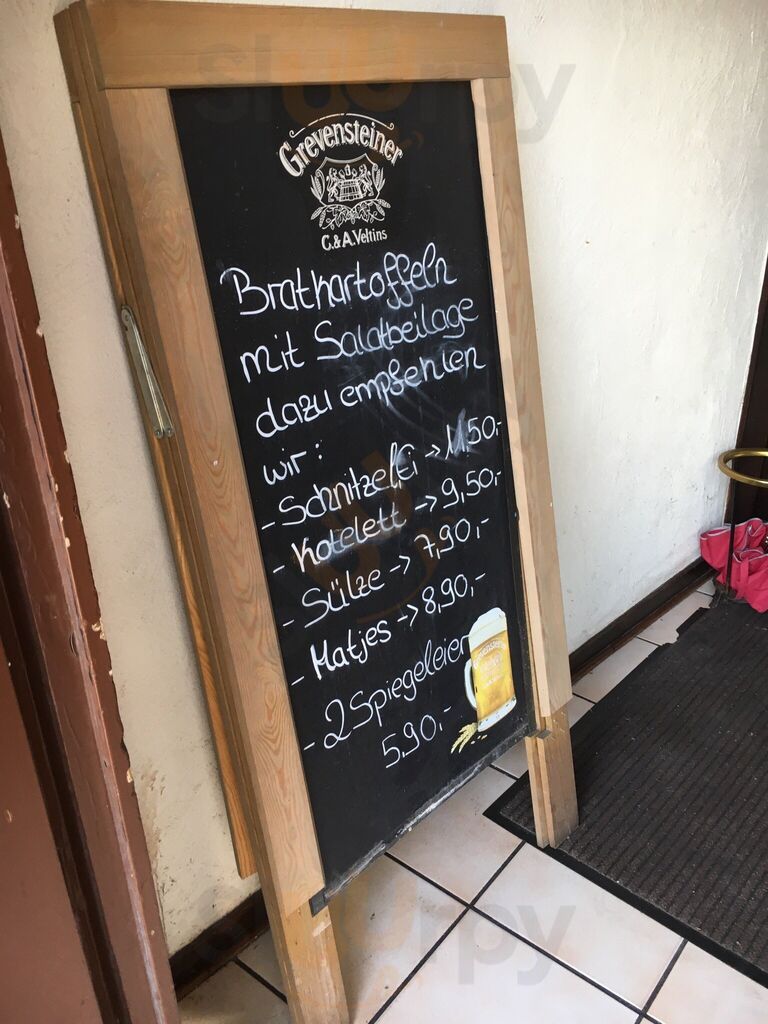 Grevensteiner
C. & A. Veltins
Bratkartoffeln
mit Salatbeilage
dazu empfehlen
wir:
- Schnitzel → 11,50,-
- Kotelett → 9,50,-
- Sülze → 7,90,-
- Matjes → 8,90,-
- 2 Spiegeleier
5.90,-
Grevensteiner
sluurpy
sluurpy